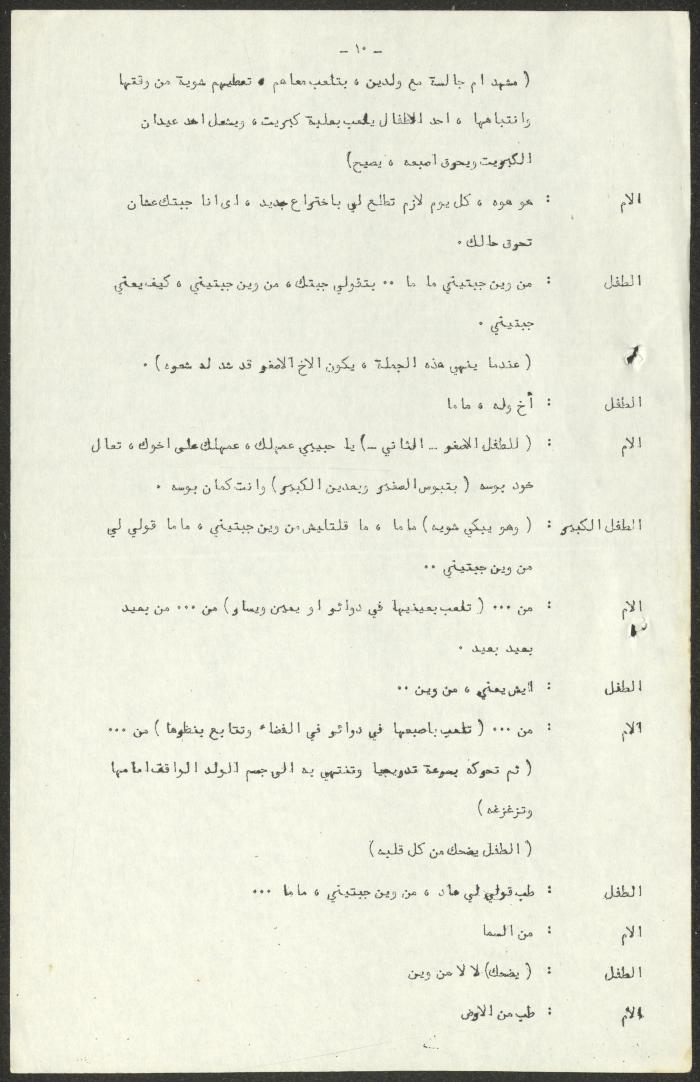 - ١٠ -
( مشهد ام جالسة مع ولدين ، بتلعب معاهم ، تعطيهم شوية من وقتها
وانتباهها ، احد الاطفال يلعب بعلبة كبريت ، ويشعل احد عيدان
الكبريت ويحرق اصبعه ، يصيح)
الام : هو هوه ، كل يوم لازم تطلع لي باختراع جديد ، اى انا جبتك عشان
تحرق حالك ٠
الطفل : من وين جبتيني ما ما ٠٠ بتقولي جبتك ، من وين جبتيني ، كيف يعني
جبتيني ٠
( عندما ينهي هذه الجملة ، يكون الاخ الاصغر قد شد له شعره ) ٠
الطفل : أخ وله ، ماما
الام : ( للطفل الاصغر - الثاني -) يا حبيبي عمهلك ، عمهلك على اخوك ، تعال
خود بوسه ( بتبوس الصغير وبعدين الكبير ) وانت كمان بوسه ٠
الطفل الكبير : ( وهو يبكي شويه ) ماما ، ما قلتليش من وين جبتيني ، ماما قولي لي
من وين جبتيني ٠٠
الام : من ٠٠٠ ( تلعب بعينيها في دوائر او يمين ويسار ) من ٠٠٠ من بعيد
بعيد بعيد ٠
الطفل : ايش يعني ، من وين ٠٠
الام : من ٠٠٠ ( تلعب باصبعها في دوائر في الفضاء وتتابع بنظرها ) من ٠٠٠
( ثم تحركه بسرعة تدريجيا وتنتهي به الى جسم الولد الواقف امامها
وتزغزغه )
( الطفل يضحك من كل قلبه )
الطفل : طب قولي لي هاد ، من وين جبتيني ، ماما ٠٠٠
الام : من السما
الطفل : ( يضحك) لا لا من وين
الام : طب من الارض